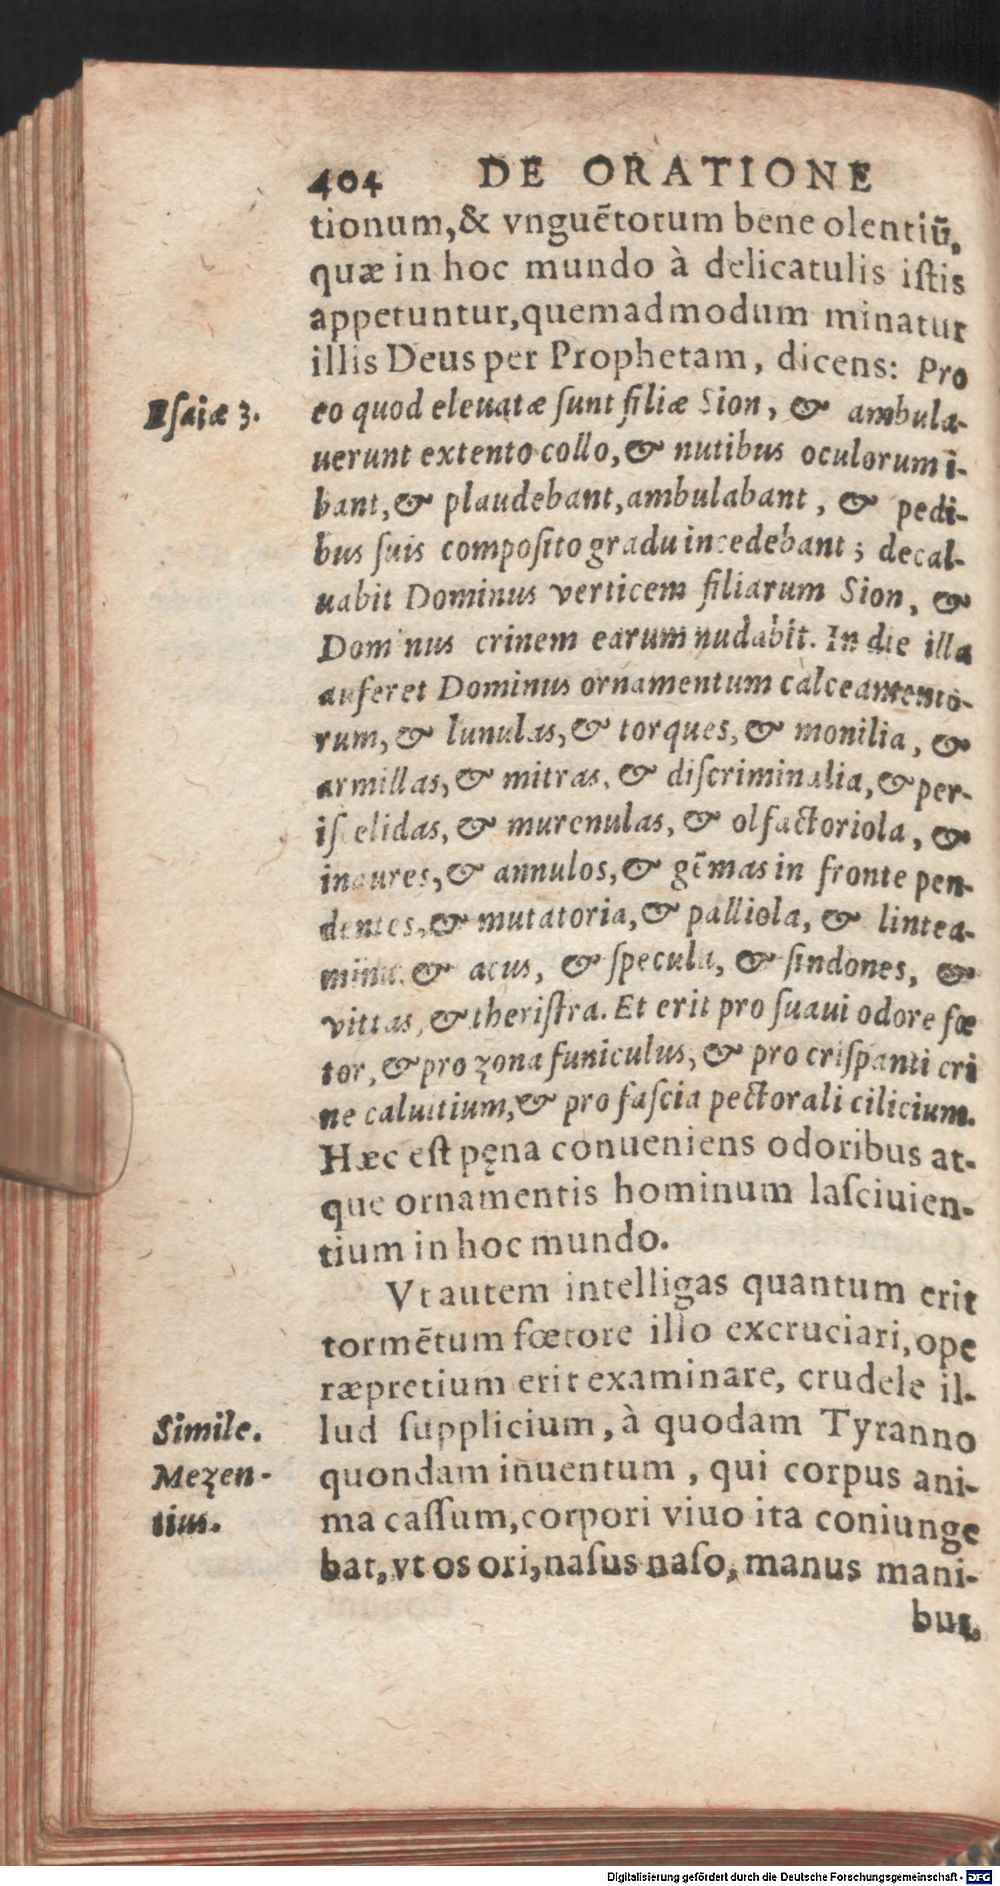 404 DE ORATIONE
tionum,& vnguētorum bene olentiū,
quæ in hoc mundo à delicatulis iſtis
appetuntur,quemadmodum minatur
illis Deus per Prophetam, dicens: Pro
Eſaiæ 3.
eo quod eleuatæ ſunt filiæ Sion, & ambula-
uerunt extento collo,& nutibus oculorum i-
bant,& plaudebant,ambulabant, & pedi-
bus ſuis compoſito gradu incedebant; decal-
uabit Dominus verticem filiarum Sion, &
Dominus crinem earum nudabit. In die illa
auferet Dominus ornamentum calceamento-
rum, & lunulas,& torques, & monilia, &
armillas,& mitras, & diſcriminalia,& per-
iſcelidas, & murenulas, & olfactoriola, &
inaures,& annulos,& gēmas in fronte pen-
dentes,& mutatoria,& palliola, & lintea-
mina,& acus, & ſpecula, & ſindones, &
vittas, & theriſtra. Et erit pro ſuaui odore fœ
tor, & pro zona funiculus, & pro criſpanti cri
ne caluitium,& pro faſcia pectorali cilicium.
Hæc eſt pęna conueniens odoribus at-
que ornamentis hominum laſciuien-
tium in hoc mundo.
Vt autem intelligas quantum erit
tormētum fœtore illo excruciari,ope
ræpretium erit examinare, crudele il-
Simile.
lud ſupplicium, à quodam Tyranno
Mezen-
quondam inuentum, qui corpus ani-
tius.
ma caſſum,corpori viuo ita coniunge
bat,vt os ori,naſus naſo, manus mani-
bus,
Digitalisierung gefördert durch die Deutsche Forschungsgemeinschaft - DFG